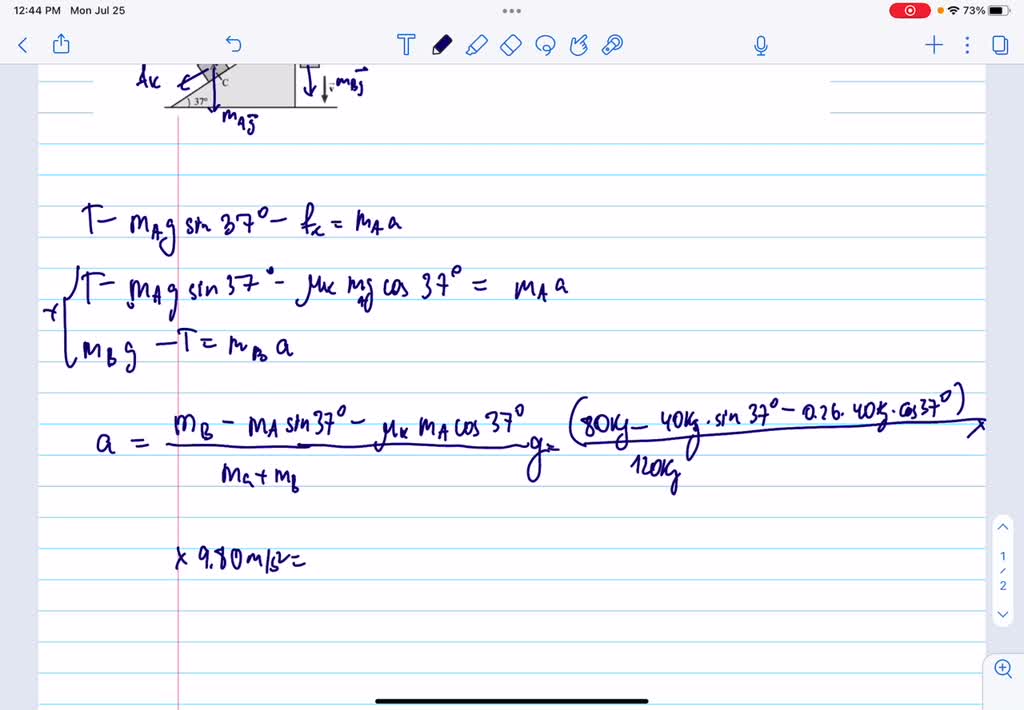 12:44 PM Mon Jul 25
73%
T
C
37°
m_A g⃗
m_B g⃗
T - m_A g sin 37° - f_k = m_A a
T - m_A g sin 37° - μ_k m_A g cos 37° = m_A a
+
m_B g - T = m_B a
a = (m_B - m_A sin 37° - μ_k m_A cos 37°) / (m_a + m_B) g = (80kg - 40kg · sin 37° - 0.26 · 40kg · cos 37°) / 120kg ×
× 9.80 m/s² =
1
/
2